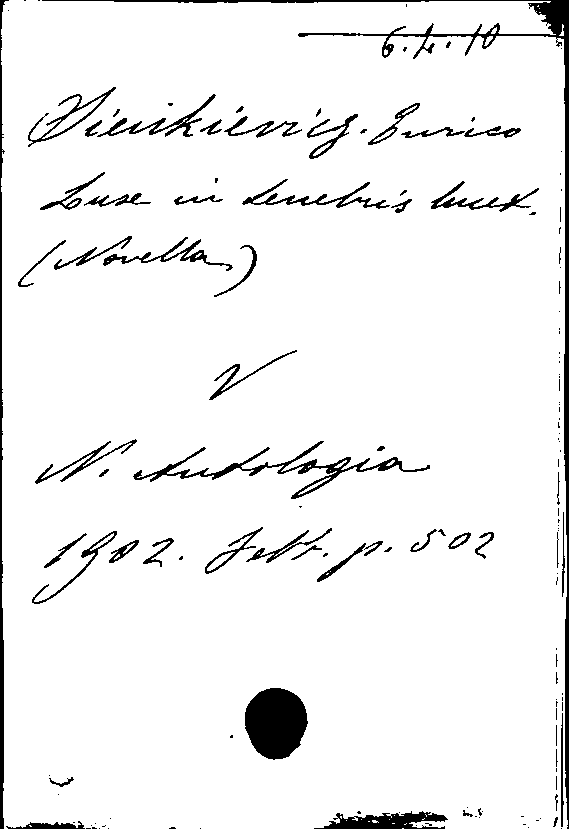 6.4.10
Sienkievicz. Enrico
Luxe in tenebris lucet.
(Novella)
V
N. Antologia
1902. Febb. p. 502